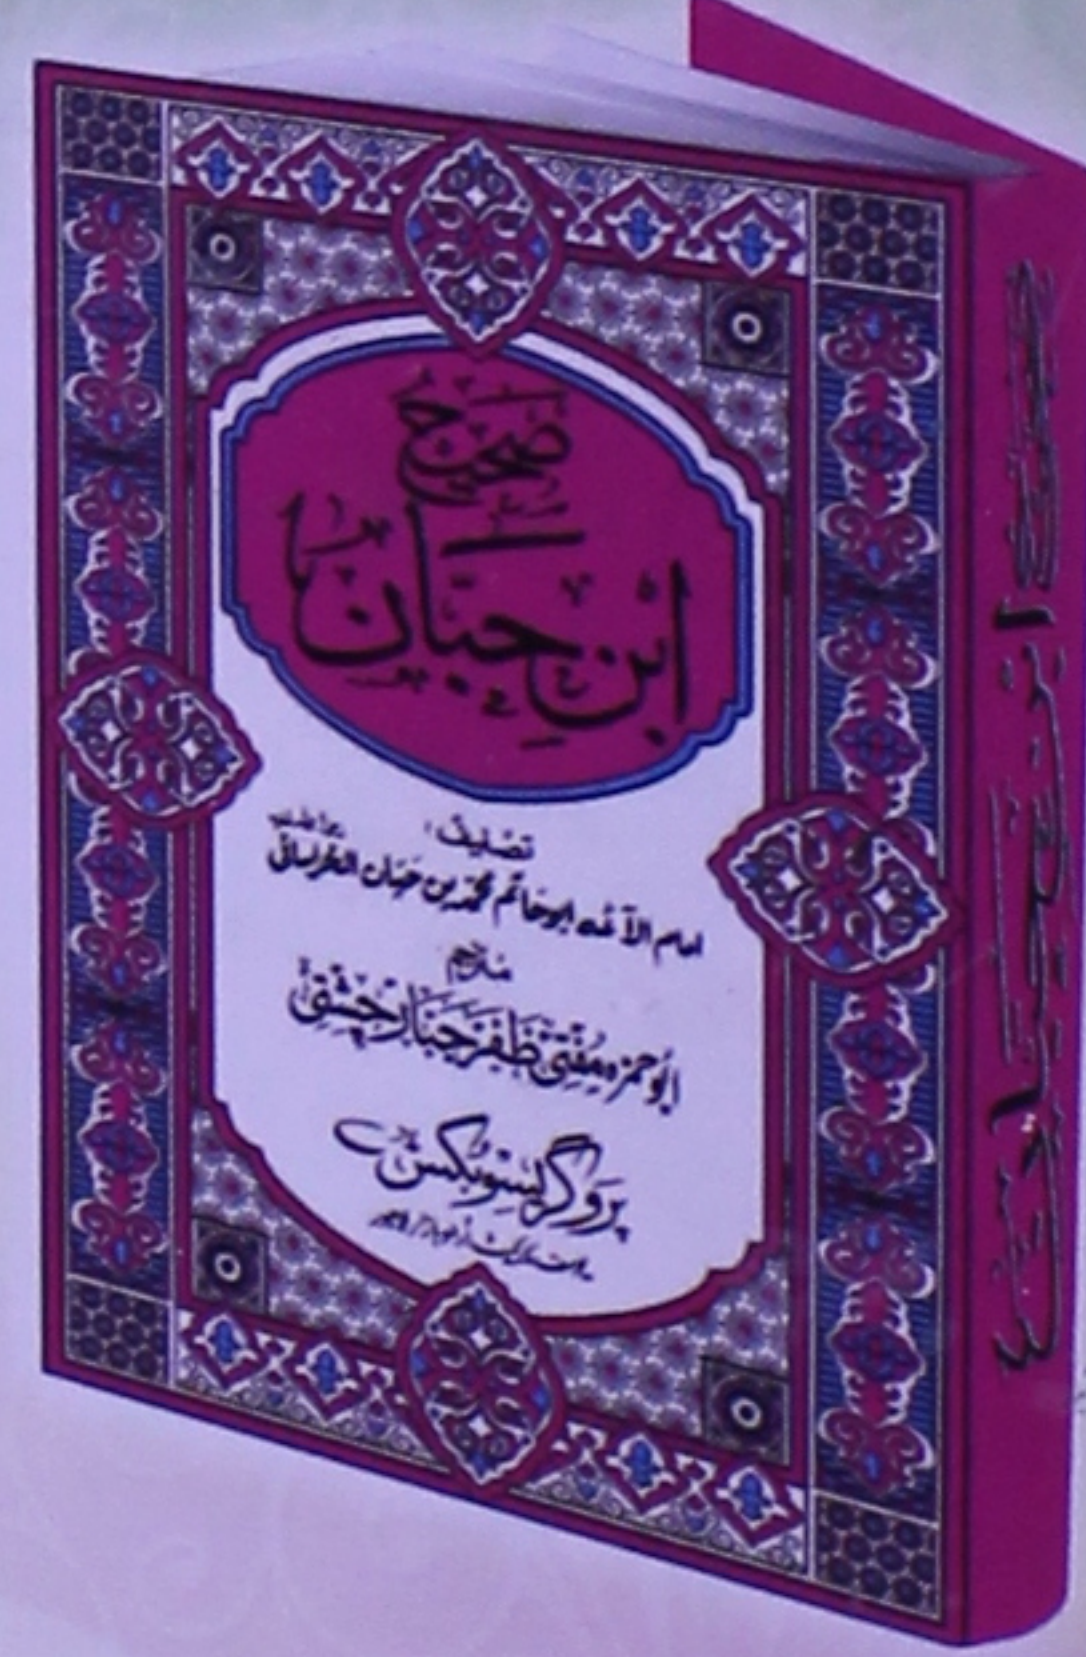 صحیح
ابن حبّان
تصنیف:
امام الآئمہ ابو حاتم محمّد بن حبان الخراسانی
مترجم
ابو حمزہ مفتی ظفر جبار چشتی
پروگریسو بکس
صحیح ابن حبان